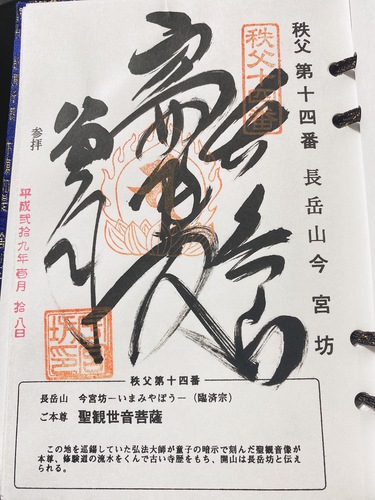 秩父 第十四番 長岳山今宮坊
秩父十四番
参拝
平成弐拾九年壱月 拾八日
秩父第十四番
長岳山 今宮坊―いまみやぼう―（臨済宗）
ご本尊 聖観世音菩薩
この地を巡錫していた弘法大師が童子の暗示で刻んだ聖観音像が
本尊、修験道の流水をくんで古い寺歴をもち、開山は長岳坊と伝え
られる。